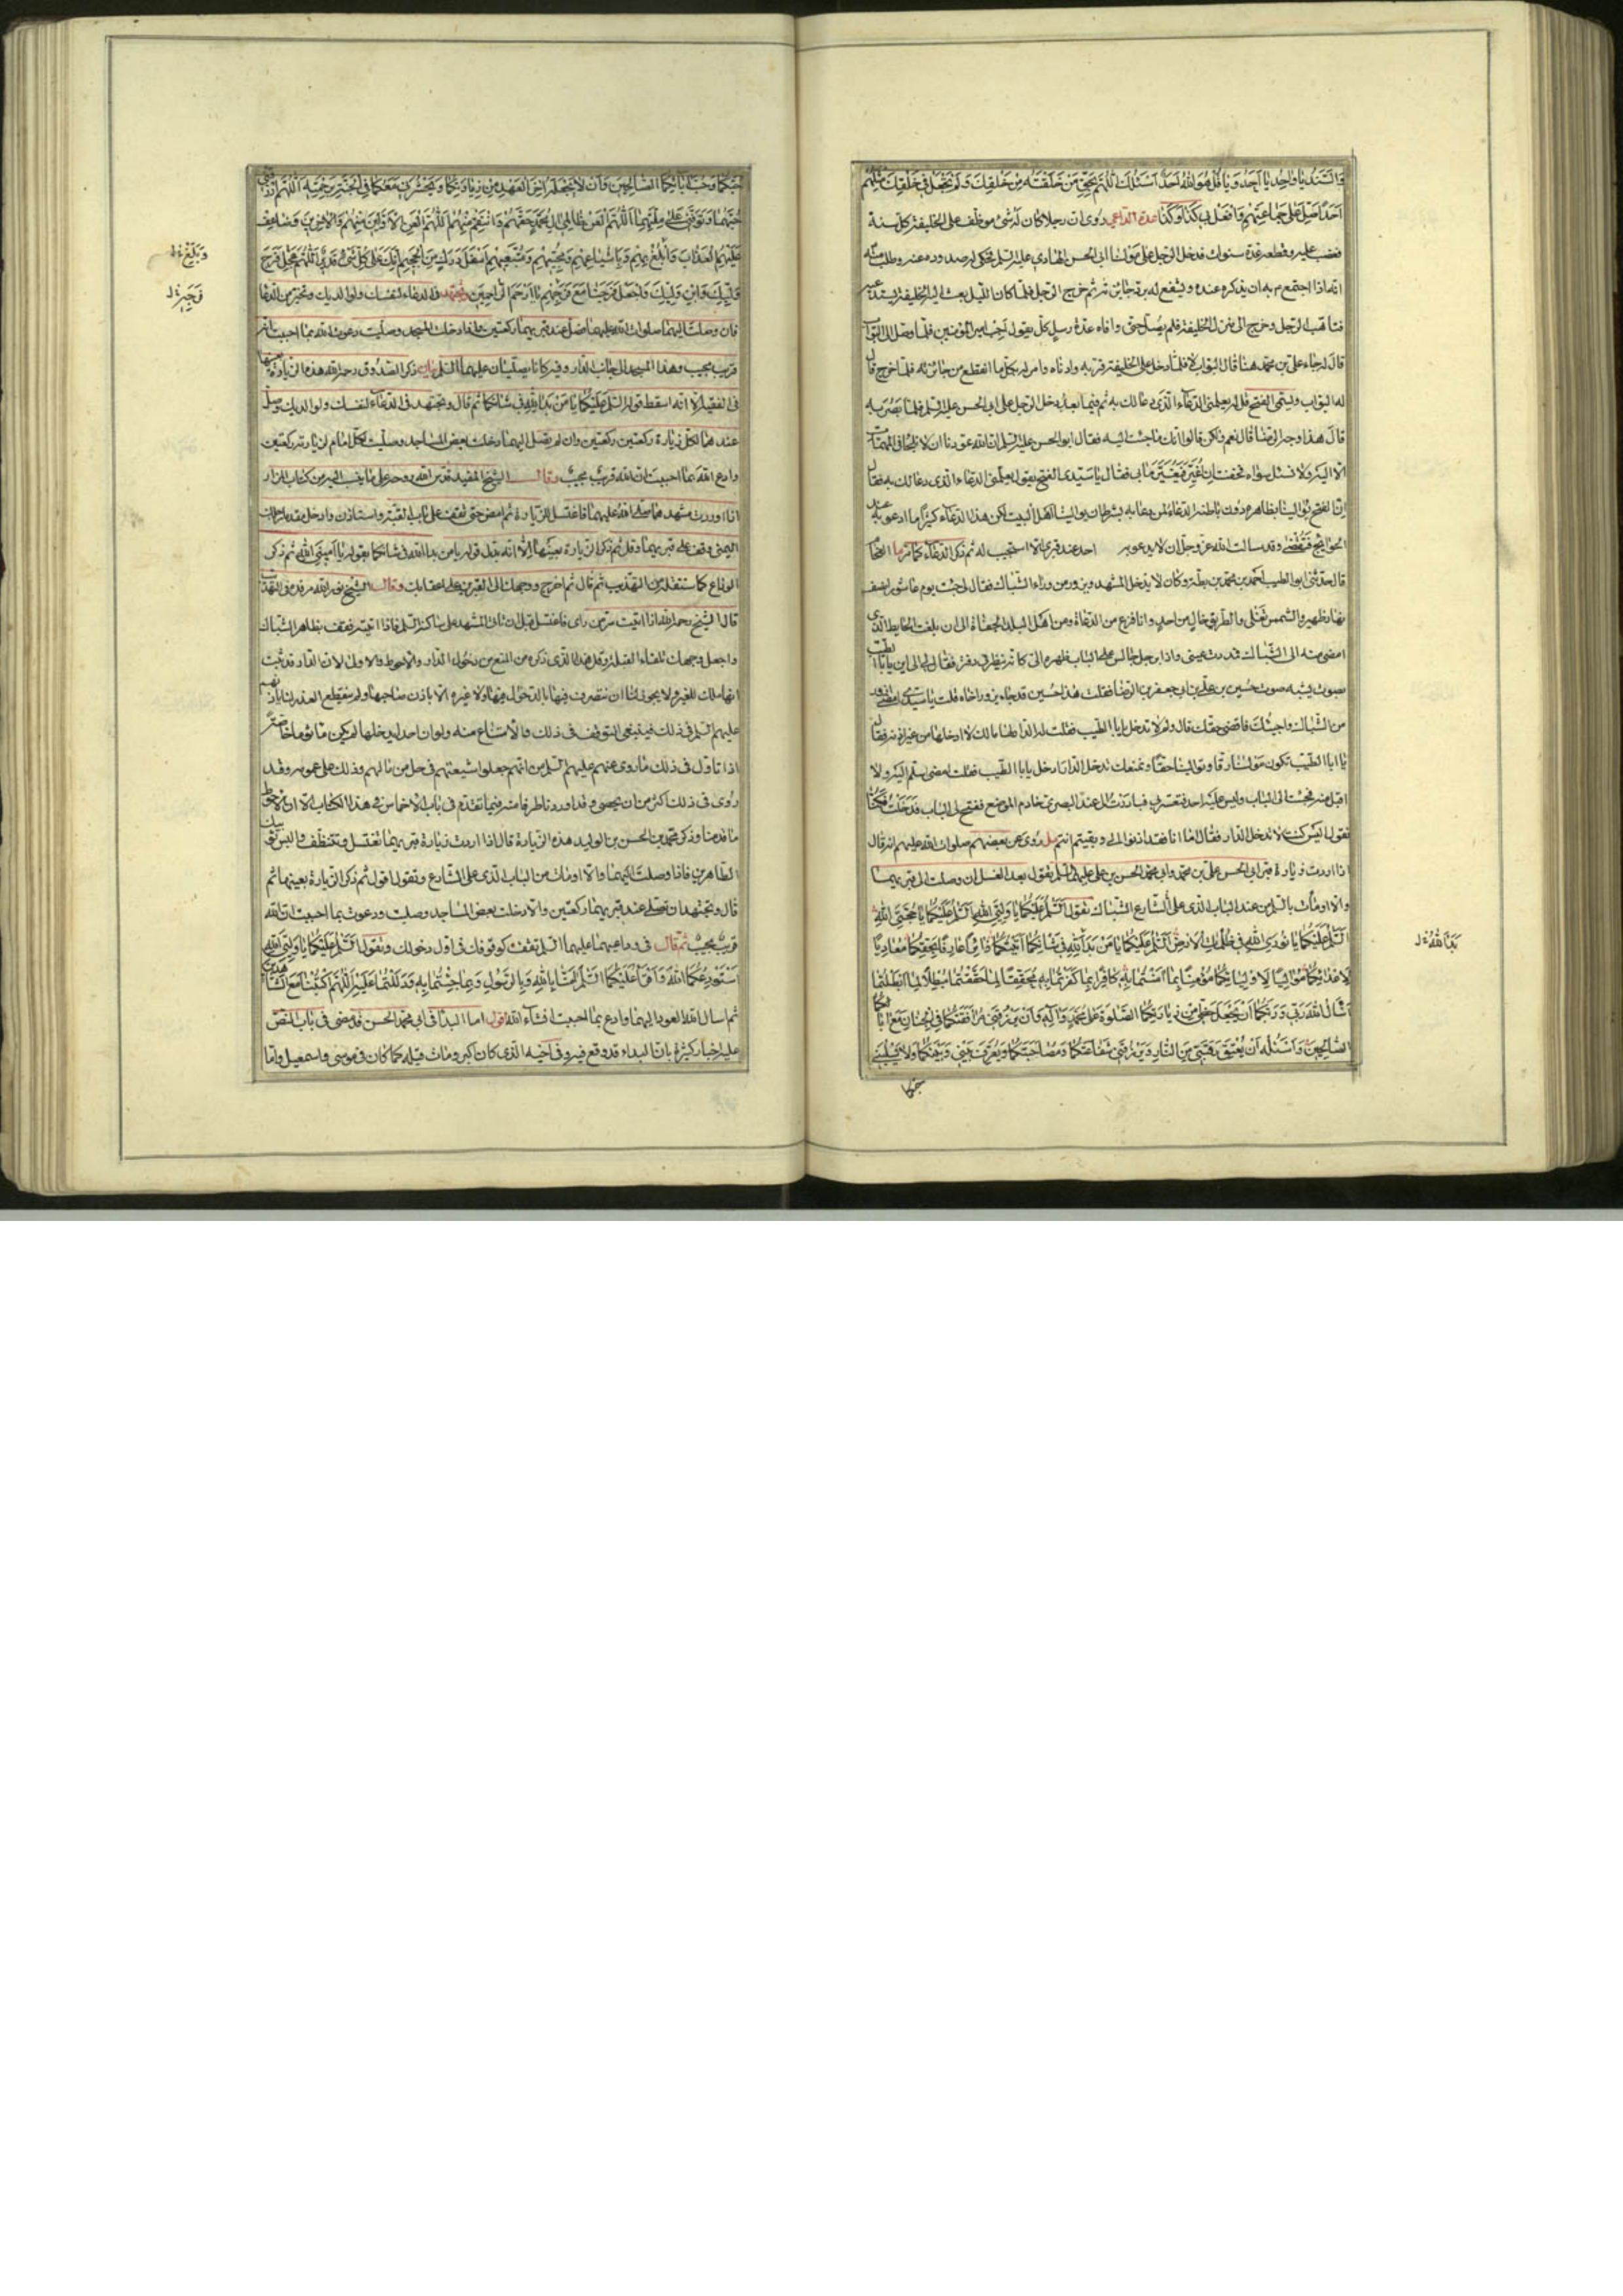 والسند يا واحد يا أحد ويا قل هو الله أحد أسئلك اللهم بحق من خلقته من خلقك ولم تجعل في خلقك مثلهم
أحدا صل على جماعتهم وافعل بي كذا وكذا عدة الداعي روى ان رجلا كان له شئ موظف على الخليفة كل سنة
فغضب عليه وقطعه عدة سنوات فدخل الرجل على مولانا ابي الحسن الهادي عليه السلم فحكى له صدوده عنه وطلب منه
انه اذا اجتمع به ان يذكره عنده ويشفع له ثم خرج الرجل فلما كان الليل بعث اليه الخليفة يستدعيه
فتأهب الرجل وخرج الى منزل الخليفة فلم يصل حتى وافاه عدة رسل كل يقول اجب امير المؤمنين فلما وصل الى البواب
قال له جاء على بن محمد هنا قال البواب لا فلما دخل على الخليفة قربه وادناه وامر له بكل ما انقطع من جائزته فلما خرج قال
له البواب ويسمى الفتح قل له يعلمنى الدعاء الذى دعا لك به ثم فيما بعد دخل الرجل على ابي الحسن عليه السلم فلما بصر به
قال هذا وجه الرضا قال نعم ولكن قالوا انك ما جئت اليه فقال ابو الحسن عليه السلم ان الله عودنا ان لا نلجأ في المهمات
الا اليه ولا نسئل سواه فخفت ان اغير فيغير ما بي فقال يا سيدى الفتح يقول يعلمنى الدعاء الذى دعا لك به فقال
ان الفتح يوالينا بظاهره دون باطنه الدعاء لمن دعا به بشرط ان يوالينا اهل البيت لكن هذا الدعاء كثيرا ما ادعو به عند
الحوائج فتقضى وقد سألت الله عز وجل ان لا يدعو به احد عند قبرى الا استجيب له ثم ذكر الدعاء كما مر
قال حدثنى ابو الطيب احمد بن محمد بن بطة وكان لا يدخل المشهد ويزور من وراء الشباك فقال لى جئت يوم عاشورا نصف
نهار ظهير والشمس تغلى والطريق خال من احد وانا فزع من الدعاة ومن اهل البلد الجفاة الى ان بلغت الحايط الذى
امضى منه الى الشباك فمددت عينى واذا برجل جالس على الباب ظهره الى كانه ينظر في دفتر فقال لى الى اين يا با الطيب
بصوت يشبه صوت حسين بن على بن ابي جعفر بن الرضا فقلت هذا حسين قد جاء يزور اخاه قلت يا سيدى امضى ازور
من الشباك واجيئك فاقضى حقك قال ولم لا تدخل يا با الطيب فقلت له الدار لها مالك لا ادخلها من غير اذنه فقال
يا ابا الطيب تكون مولانا رقا وتوالينا حقا ونمنعك تدخل الدار ادخل يا با الطيب فقلت امضى اسلم اليه ولا
اقبل منه فجئت الى الباب وليس عليه احد فتعسر بي فبادرت الى عند البصرى خادم الموضع ففتح لى الباب فدخلت فكنا
نقول اليس كنت لا تدخل الدار فقال اما انا فقد اذنوا لي وبقيتم انتم مل روى عن بعضهم صلوات الله عليهم انه قال
اذا اردت زيارة قبر ابي الحسن على بن محمد وابي محمد الحسن بن على عليهما السلم تقول بعد الغسل ان وصلت الى قبريهما
والا اومأت بالسلم من عند الباب الذى على الشارع الشباك تقول السلم عليكما يا وليى الله السلم عليكما يا حجتى الله
السلم عليكما يا نورى الله في ظلمات الارض السلم عليكما يا من بدا لله في شأنكما اتيتكما زائرا عارفا بحقكما معاديا
لاعدائكما مواليا لاوليائكما مؤمنا بما امنتما به كافرا بما كفرتما به محققا لما حققتما مبطلا لما ابطلتما
اسأل الله ربي وربكما ان يجعل حظى من زيارتكما الصلوة على محمد وآله وان يرزقنى مرافقتكما في الجنان مع ابائكما
الصالحين واسئله ان يعتق رقبتى من النار ويرزقنى شفاعتكما ومصاحبتكما ويعرف بينى وبينكما ولا يسلبنى
حبكما
بدا لله خ ل
حبكما وحب ابائكما الصالحين وان لا يجعله اخر العهد من زيارتكما ويحشرنى معكما في الجنة برحمته اللهم ارزقنى
حبهما وتوفنى على ملتهما اللهم العن ظالمى ال محمد حقهم وانتقم منهم اللهم العن الاولين منهم والاخرين وضاعف
عليهم العذاب وابلغ بهم وباشياعهم ومحبيهم ومتبعيهم اسفل درك من الجحيم انك على كل شئ قدير اللهم عجل فرج
وليك وابن وليك واجعل فرجنا مع فرجهم يا ارحم الراحمين وتجتهد في الدعاء لنفسك ولوالديك وتخير من الدعا
فان وصلت اليهما صلوات الله عليهما فصل عند قبريهما ركعتين واذا دخلت المسجد وصليت دعوت الله بما احببت انه
قريب مجيب وهذا المسجد الى جانب الدار وفيه كانا يصليان عليهما السلم بيان ذكر الصدوق رحمه الله هذه الزيارة بعينها
في الفقيه الا انه اسقط قوله السلم عليكما يا من بدا لله في شأنكما ثم قال وتجتهد في الدعاء لنفسك ولوالديك وصل
عندهما لكل زيارة ركعتين ركعتين وان لم تصل اليهما دخلت بعض المساجد وصليت لكل امام لزيارته ركعتين
وادع الله بما احببت ان الله قريب مجيب وقال الشيخ المفيد قدس الله روحه على ما ينسب اليه من كتاب المزار
اذا وردت مشهدهما صلى الله عليهما فاغتسل للزيارة ثم امض حتى تقف على باب القبة واستاذن وادخل مقدما رجلك
اليمنى وقف على قبريهما وقل ثم ذكر الزيارة بعينها الا انه بدل قوله يا من بدا لله في شأنكما بقوله يا امينى الله ثم ذكر
الوداع كما سننقله من التهذيب ثم قال ثم اخرج ووجهك الى القبرين على اعقابك وقال الشيخ نور الله مرقده في التهذيب
قال الشيخ رحمه الله اذا اتيت سر من راى فاغتسل قبل ان تاتى المشهد على ساكنه السلم فاذا اتيته فقف بظاهر الشباك
واجعل وجهك تلقاء القبلة وقل هذا الذى ذكره من المنع من دخول الدار والاحوط والاولى لان الدار قد ثبت
انها ملك للغير ولا يجوز لنا ان نتصرف فيها بالدخول فيها ولا غيره الا باذن صاحبها ولم ينقطع العذر لنا باذنهم
عليهم السلم في ذلك فينبغى التوقف في ذلك والامتناع منه ولو ان احدا يدخلها لم يكن ماثوما خاصة
اذا تاول في ذلك ما روى عنهم عليهم السلم من انهم جعلوا شيعتهم في حل من مالهم وذلك على عمومه وقد
روى في ذلك اكثر من ان يحصى وقد اوردنا طرفا منه فيما تقدم في باب الاخماس في هذا الكتاب الا ان الاحوط
ما قدمنا وذكر محمد بن الحسن بن الوليد هذه الزيارة قال اذا اردت زيارة قبريهما تغتسل وتتنظف والبس ثوبيك
الطاهرين فاذا وصلت اليهما والا اومأت من الباب الذى على الشارع وتقول اقول ثم ذكر الزيارة بعينها ثم
قال وتجتهد ان تصلى عند قبريهما ركعتين والا دخلت بعض المساجد وصليت ودعوت بما احببت ان الله
قريب مجيب ثم قال في وداعهما عليهما السلم تقف كوقوفك في اول دخولك وتقول السلم عليكما يا وليى الله
استودعكما الله واقرأ عليكما السلم امنا بالله وبالرسول وبما جئتما به ودللتما عليه اللهم اكتبنا مع الشاهدين
ثم اسال الله العود اليهما وادع بما احببت انشاء الله اقول اما البداء في ابي محمد الحسن فقد مضى في باب النص
عليه اخبار كثيرة بان البداء قد وقع فيه وفي اخيه الذى كان اكبر ومات قبله كما كان في موسى واسمعيل واما
وبلغ خ ل